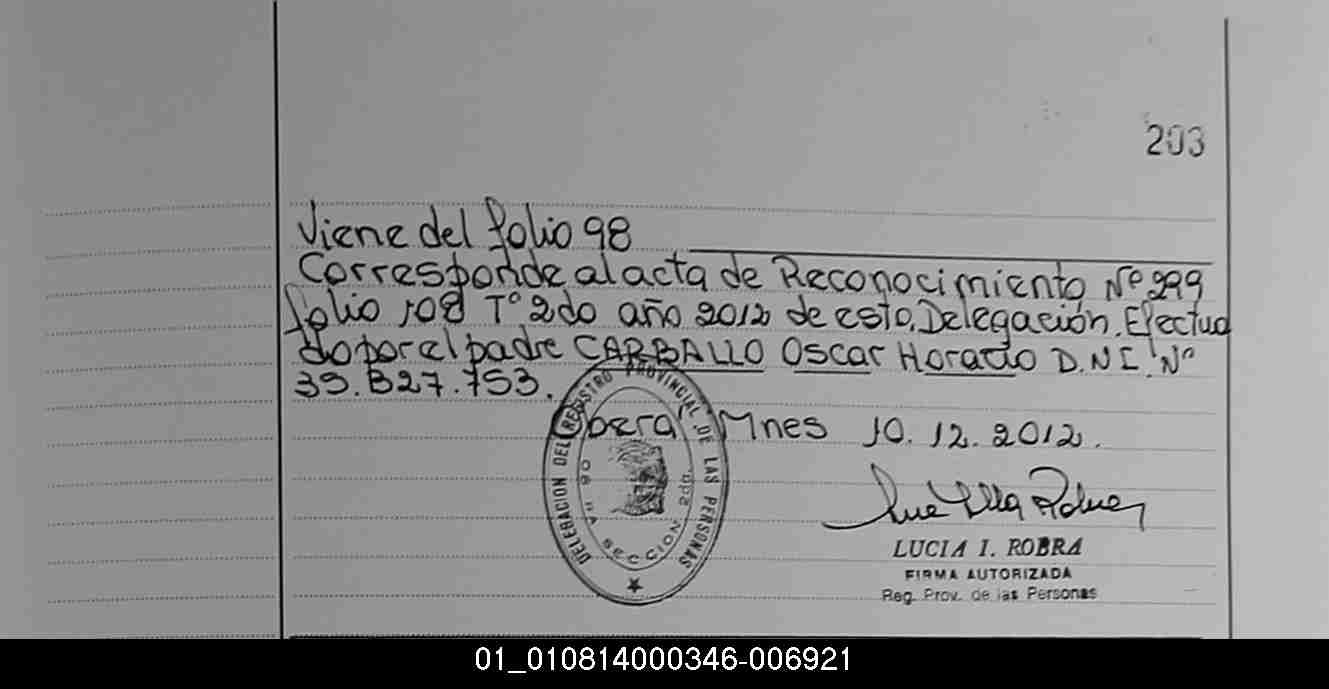 203
Viene del folio 98
Corresponde al acta de Reconocimiento Nº 299
folio 108 Tº 2do año 2012 de esta Delegación. Efectua
do por el padre CARBALLO Oscar Horacio D.N.I. Nº
39.827.753.
Oberá Mnes 10.12.2012.
DELEGACION DEL REGISTRO PROVINCIAL DE LAS PERSONAS
SECCION 2da.
LUCIA I. ROBRA
FIRMA AUTORIZADA
Reg. Prov. de las Personas
01_010814000346-006921